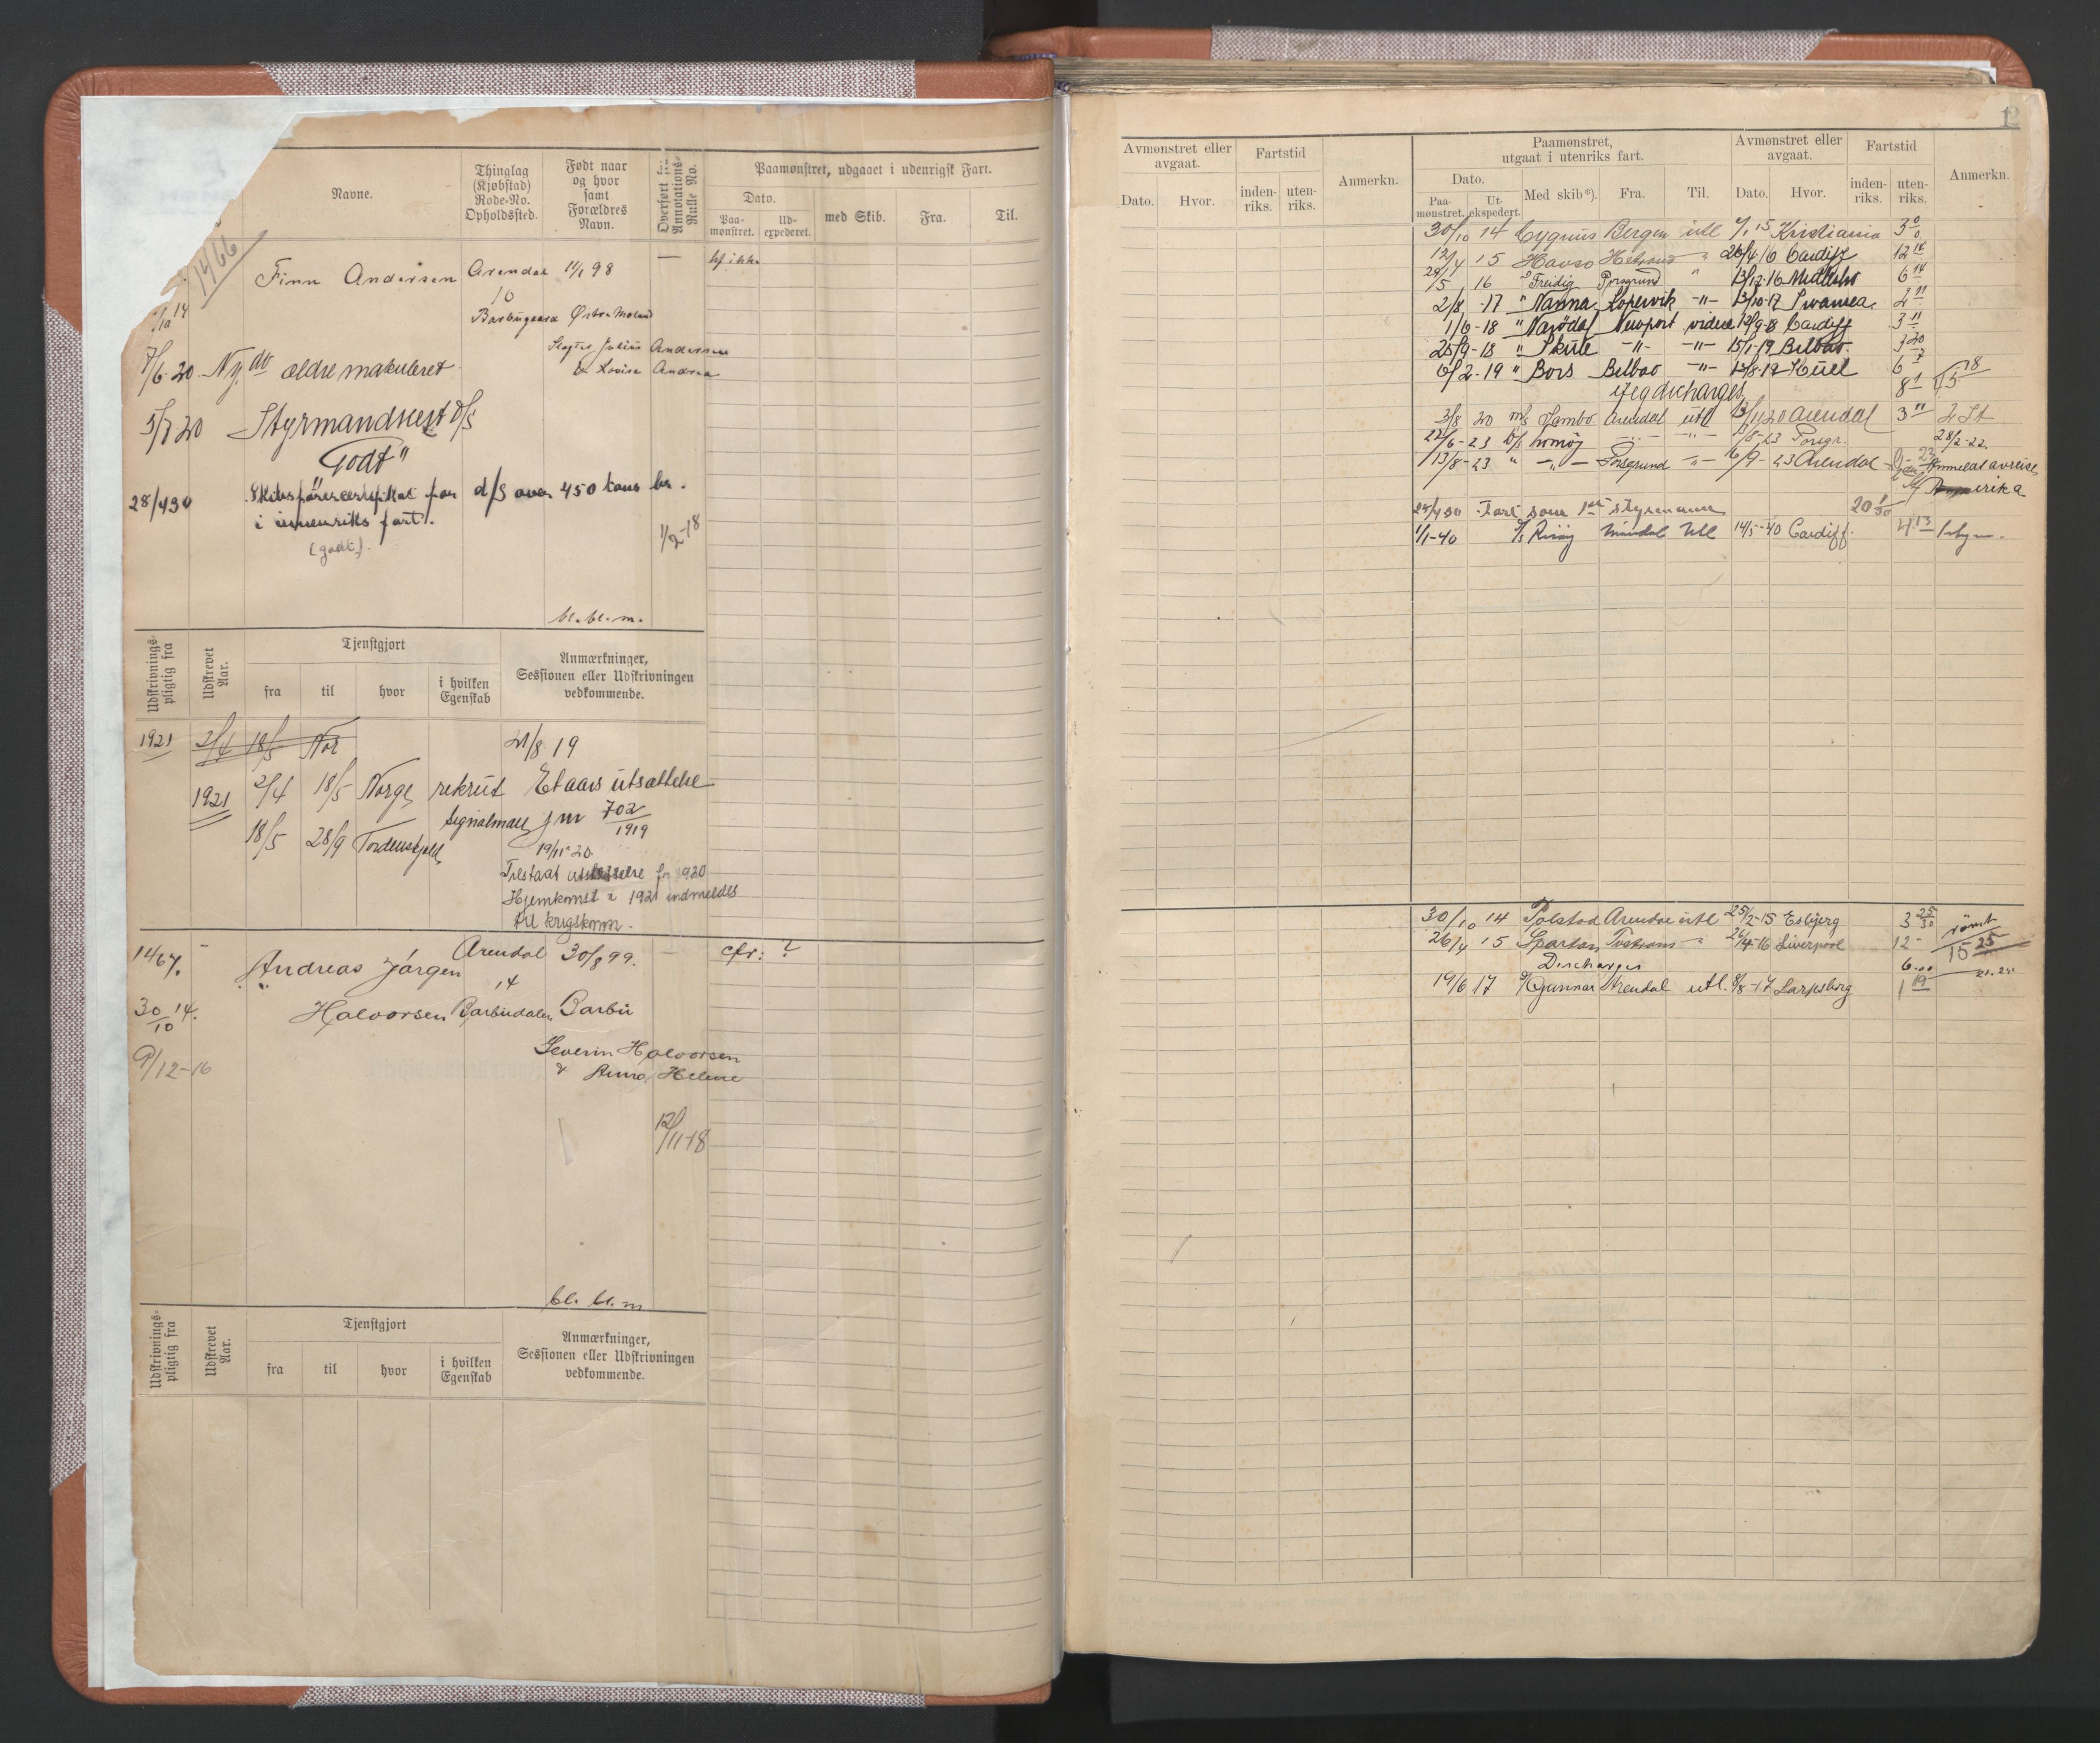 Navne.
Thinglag
(Kjøbstad)
Rode-No.
Opholdssted.
Født naar
og hvor
samt
Forældres
Navn.
Overført
Annotations-
Rulle No.
Paamønstret, udgaaet i udenrigsk Fart.
Dato.
Paa-
mønstret.
Ud-
expederet.
med Skib.
Fra.
Til.
1466
Finn Andersen Arendal 11/1 98 —
10
Barbugaard Østre Moland
Julius Andersen
& Lovise Andrea
7/6-20 Ny do ældre makuleret
5/7 20 Styrmandscert d/s
"Godt"
28/4 30 Skibsførercertifikat for d/s over 450 tons br.
i innenriks fart.
(godt).
1/2-18
bl. bl. m.
Udskrivnings-
pligtig fra
Udskrevet
Aar.
Tjenstgjort
fra
til
hvor
i hvilken
Egenskab
Anmærkninger,
Sessionen eller Udskrivningen
vedkommende.
1921 2/4 18/5 Nor
21/8 19
1921 2/4 18/5 Norge rekrut Et aars utsættelse
signalmatr jnr 702/1919
18/5 28/9 Tordenskjold
19/11-20
Tilstaat utsættelse for 1920
Hjemkomst i 1921 indmeldes
til krigskomm.
1467. Andreas Jørgen Arendal 30/8 99. — cfr: ?
14
30/10 14. Halvorsen Barbudalen Barbu
9/12-16
Severin Halvorsen
& Anna Helene
12/11-18
bl. bl. m
Udskrivnings-
pligtig fra
Udskrevet
Aar.
Tjenstgjort
fra
til
hvor
i hvilken
Egenskab
Anmærkninger,
Sessionen eller Udskrivningen
vedkommende.
Avmønstret eller
avgaat.
Dato.
Hvor.
Fartstid
inden-
riks.
uten-
riks.
Anmerkn.
Paamønstret,
utgaat i utenriks fart.
Dato.
Paa-
mønstret.
Ut-
ekspedert.
Med skib*).
Fra.
Til.
Avmønstret eller
avgaat.
Dato.
Hvor.
Fartstid
inden-
riks.
uten-
riks.
Anmerkn.
30/10 14 Cygnus Bergen utl 15 Kristiania 3 0/0
12/4 15 Havso " 26/4 16 Cardiff 12 14
/5 16 " Freidig Porsgrund " 13/12-16 6 14
2/8 -17 " Nanna Kopervik -"- 13/10-17 Swansea 2 11
1/6-18 " Narödal Newport videre 12/9-18 Cardiff 3 11
25/9-18 " Skule -"- -"- 15/1-19 Bilbao 3 20
6/2-19 " Bors Bilbao -"- 13/8-19 Kiel 6 7
discharges 8 1
3/8 20 m/s Jambo Arendal utl 20 Arendal 3 11 2 St
28/2-22
22/6-23 -"- -"- -23 Porsgr.
13/8-23 " -"- Porsgrund -"- 6/9-23 Arendal Anmeldt avreise
Amerika
25/4 30 Fart som 1ste styrmann 20
1/1-40 Risöy Mandal Utl 14/5-40 Cardiff. 4 13
30/10 14 Polstad Arendal utl 25/2-15 Esbjerg 3 25/30 rømt
26/4 15 Spartan " 26/4-16 Liverpool 12- 15 25
Discharges 6
19/6 17 Gunnar Arendal utl. 8/8-17 Sarpsborg 1 19